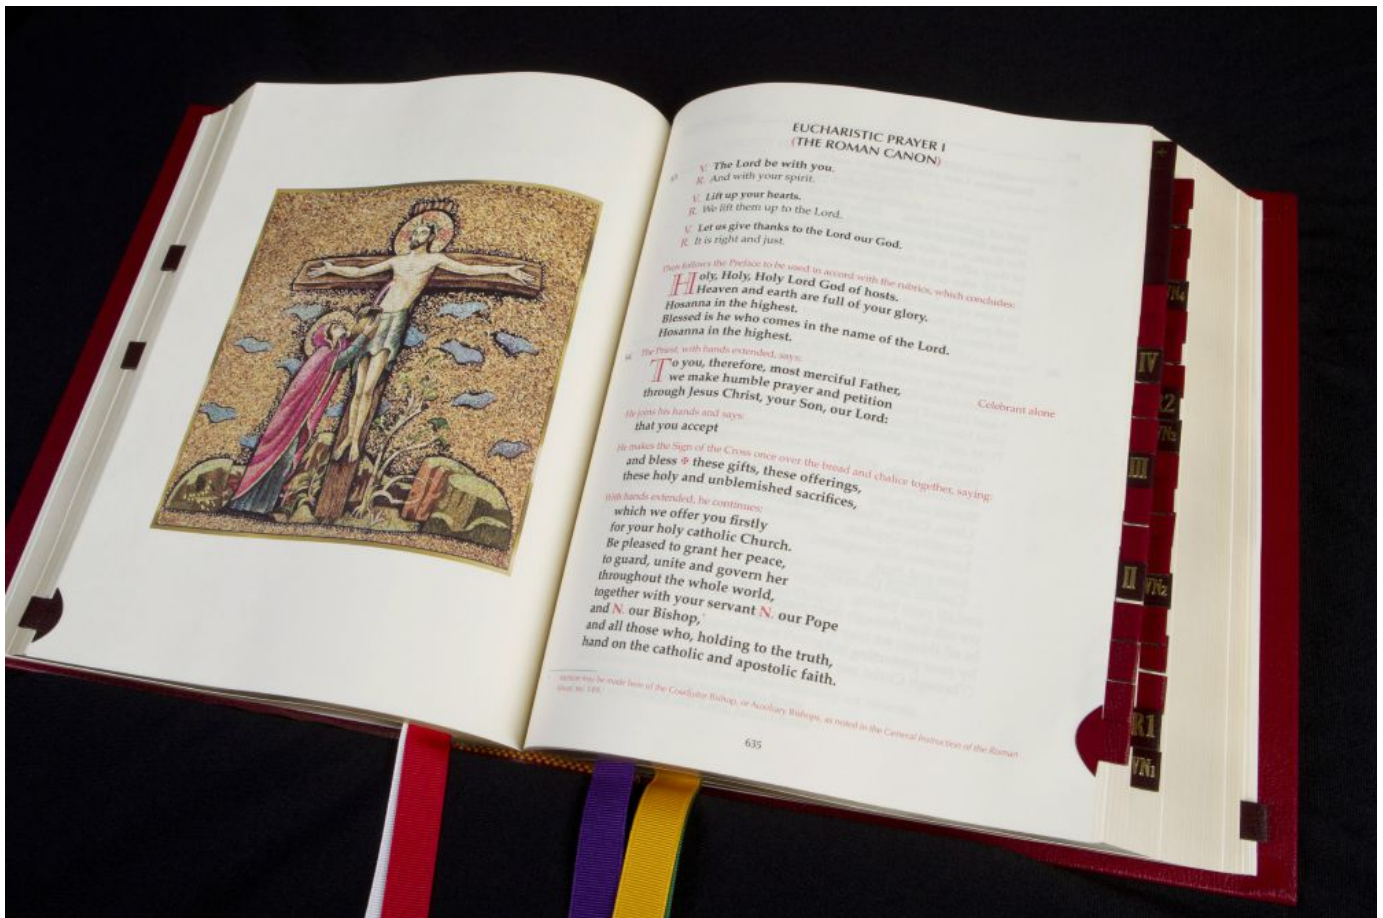 EUCHARISTIC PRAYER I
(THE ROMAN CANON)
V. The Lord be with you.
R. And with your spirit.
V. Lift up your hearts.
R. We lift them up to the Lord.
V. Let us give thanks to the Lord our God.
R. It is right and just.
Then follows the Preface to be used in accord with the rubrics, which concludes:
Holy, Holy, Holy Lord God of hosts.
Heaven and earth are full of your glory.
Hosanna in the highest.
Blessed is he who comes in the name of the Lord.
Hosanna in the highest.
The Priest, with hands extended, says:
To you, therefore, most merciful Father,
we make humble prayer and petition
through Jesus Christ, your Son, our Lord:
Celebrant alone
He joins his hands and says:
that you accept
He makes the Sign of the Cross once over the bread and chalice together, saying:
and bless ✠ these gifts, these offerings,
these holy and unblemished sacrifices,
With hands extended, he continues:
which we offer you firstly
for your holy catholic Church.
Be pleased to grant her peace,
to guard, unite and govern her
throughout the whole world,
together with your servant N. our Pope
and N. our Bishop,*
and all those who, holding to the truth,
hand on the catholic and apostolic faith.
may be made here of the Coadjutor Bishop, or Auxiliary Bishops, as noted in the General Instruction of the Roman
635
VN4
IV
R2
VN3
III
II
VN2
R1
VN1